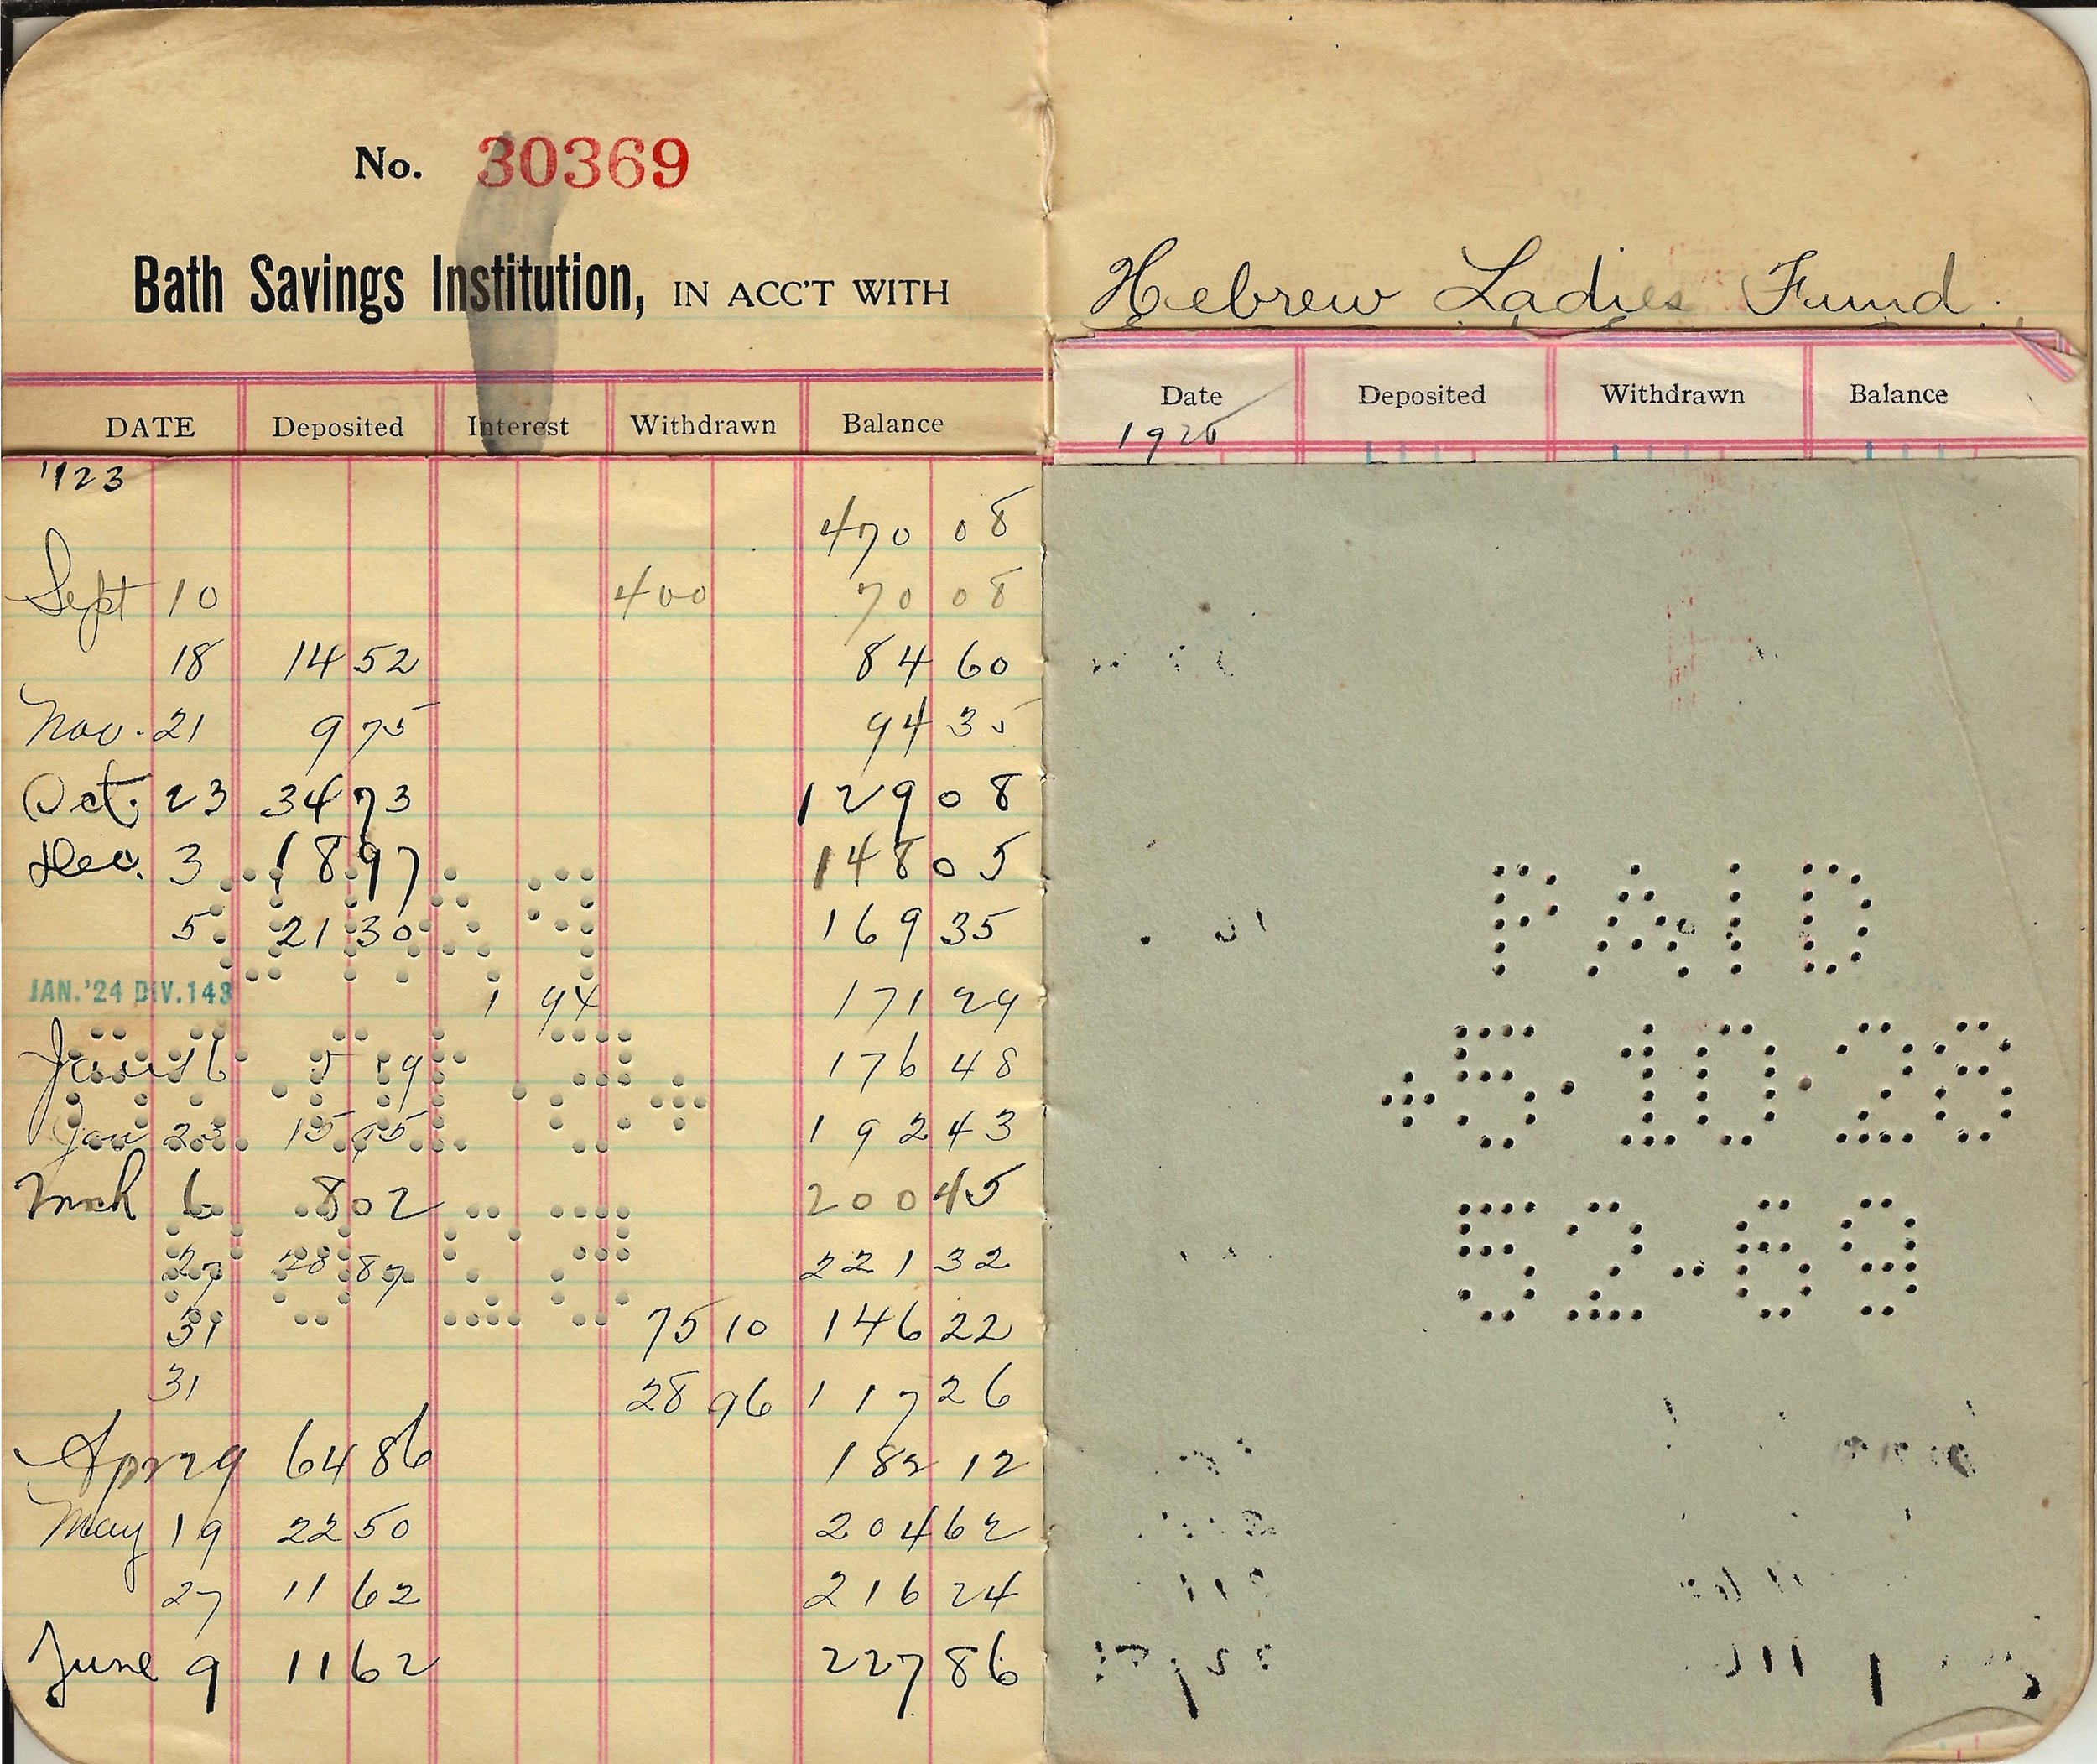 No. 30369
Bath Savings Institution, IN ACC'T WITH
DATE Deposited Interest Withdrawn Balance
'123
470 08
Sept 10 400 70 08
18 14 52 84 60
Nov. 21 9 75 94 35
Oct. 23 34 73 129 08
Dec. 3 18 97 148 05
5 21 30 169 35
JAN.'24 DIV.143 1 94 171 29
Jan 16 5 19 176 48
Jan 23 15 95 192 43
Mch 6 8 02 200 45
27 20 87 221 32
31 75 10 146 22
31 28 96 117 26
Apr 29 64 86 182 12
May 19 22 50 204 62
27 11 62 216 24
June 9 11 62 227 86
Hebrew Ladies Fund.
Date Deposited Withdrawn Balance
PAID
+5·10·28
52-69